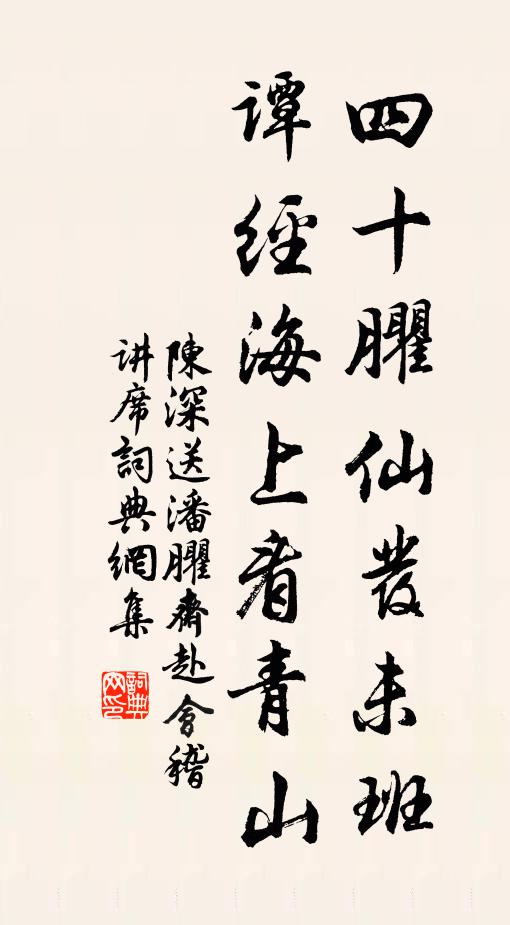 四十臞仙发未班
谭經海上看青山
陳深送潘臞齋赴會稽
讲席詞典網集
詞典网印